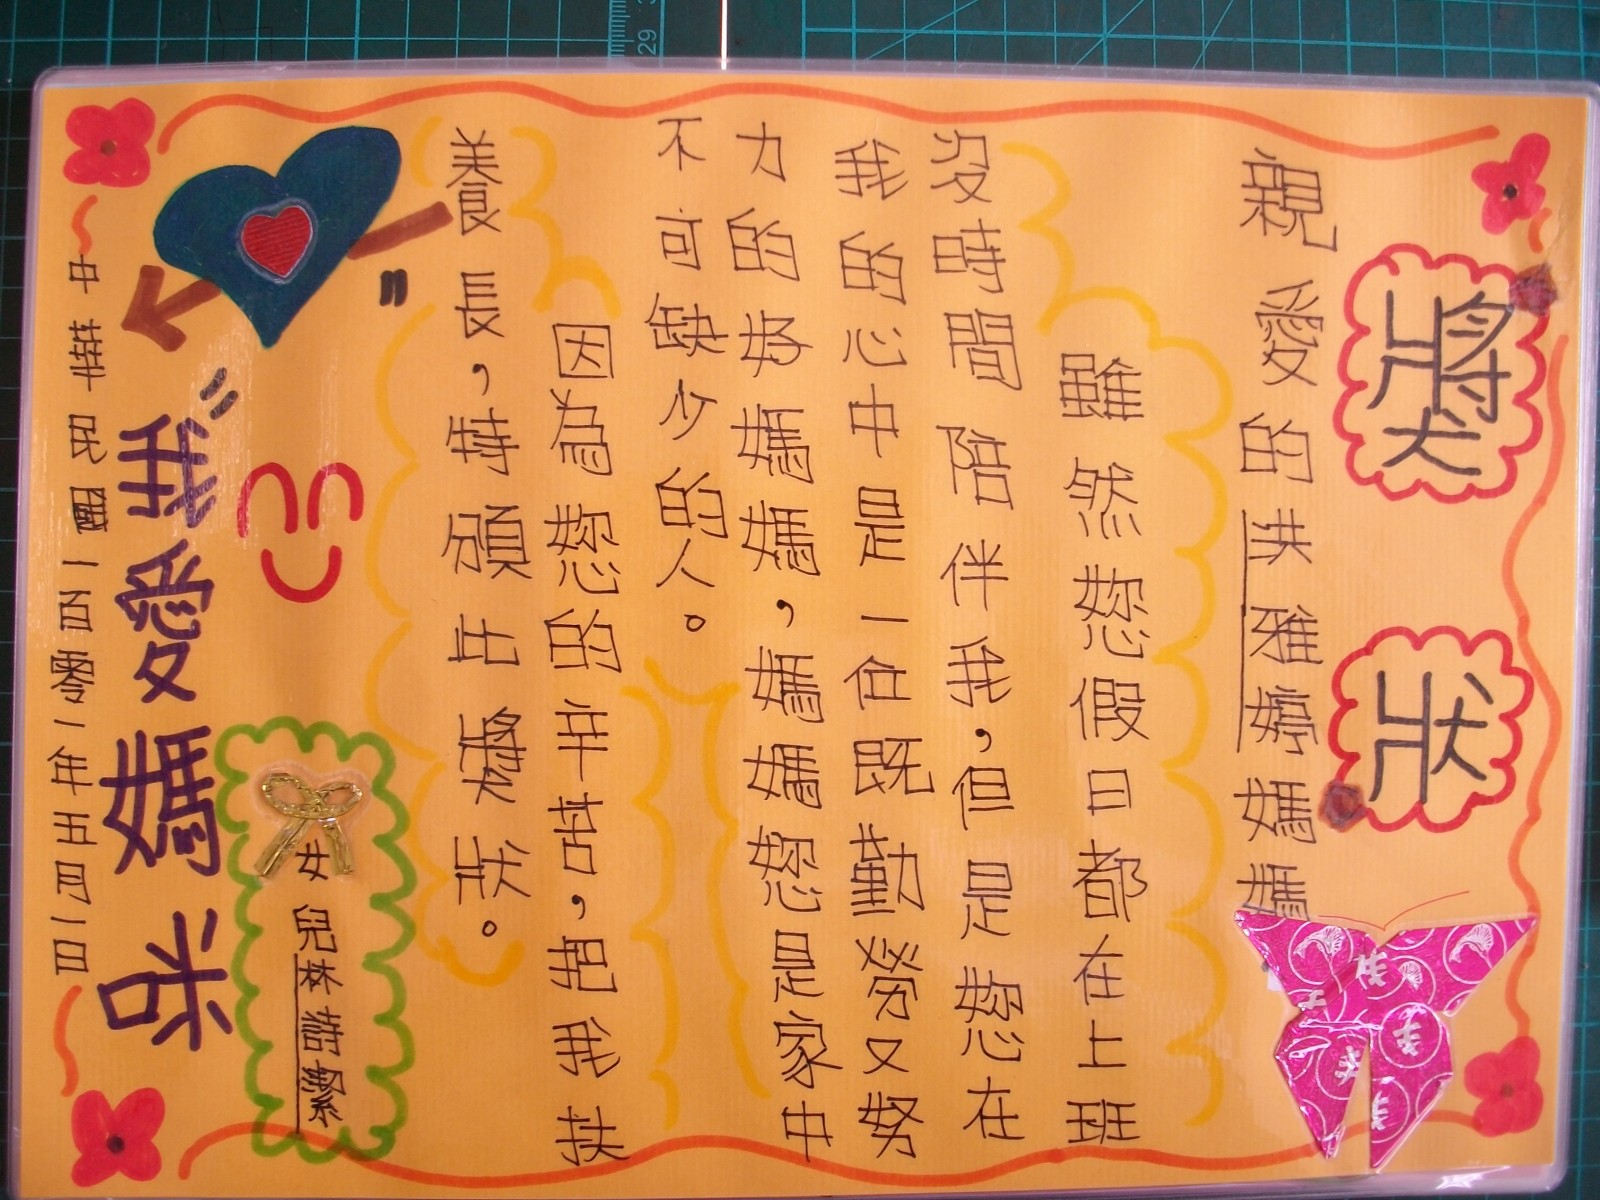 獎狀
親愛的洪雅婷媽媽
雖然您假日都在上班
沒時間陪伴我，但是您在
我的心中是一位既勤勞又努
力的好媽媽，媽媽您是家中
不可缺少的人。
因為您的辛苦，把我扶
養長，特頒此獎狀。
女兒林詩潔
"我愛媽咪
中華民國一百零一年五月一日
29